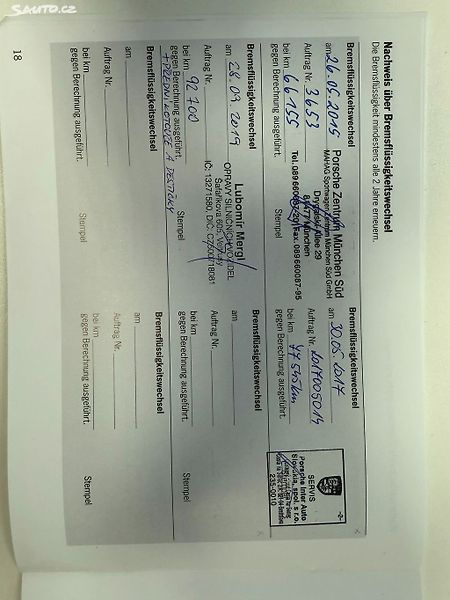 SAUTO.CZ
Nachweis über Bremsflüssigkeitswechsel
Die Bremsflüssigkeit mindestens alle 2 Jahre erneuern.
Bremsflüssigkeitswechsel
am 26.05.2015
Auftrag Nr. 3653
bei km 66155
gegen Berechnung ausgeführt.
Porsche Zentrum München Süd
MAHAG Sportwagen Zentrum München Süd GmbH
Drygalski-Allee 29
81477 München
Bremsflüssigkeitswechsel
am 30.05.2017
Auftrag Nr. 2017005014
bei km
gegen Berechnung ausgeführt.
SERVIS
Porsche Inter Auto
Slovakia, spol. s r.o.
235-0010
Bremsflüssigkeitswechsel
am 28.09.2019
Auftrag Nr.
bei km 92700
gegen Berechnung ausgeführt.
+ PŘEDNÍ KOTOUČE A DESTIČKY
Lubomír Mergl
OPRAVY SILNIČNÍCH VOZIDEL
Stempel
Bremsflüssigkeitswechsel
am
Auftrag Nr.
bei km
gegen Berechnung ausgeführt.
Stempel
Bremsflüssigkeitswechsel
am
Auftrag Nr.
bei km
gegen Berechnung ausgeführt.
Stempel
Bremsflüssigkeitswechsel
am
Auftrag Nr.
bei km
gegen Berechnung ausgeführt.
Stempel
18